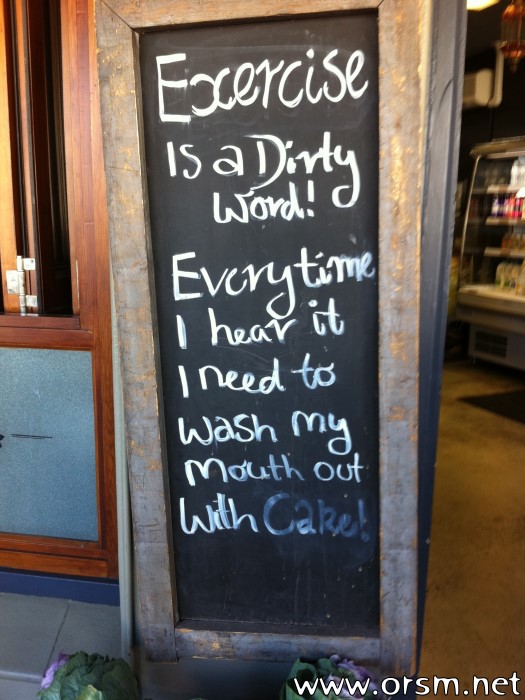 Exercise
Is a Dirty
Word!
Everytime
I hear it
I need to
wash my
mouth out
with Cake!
www.orsm.net